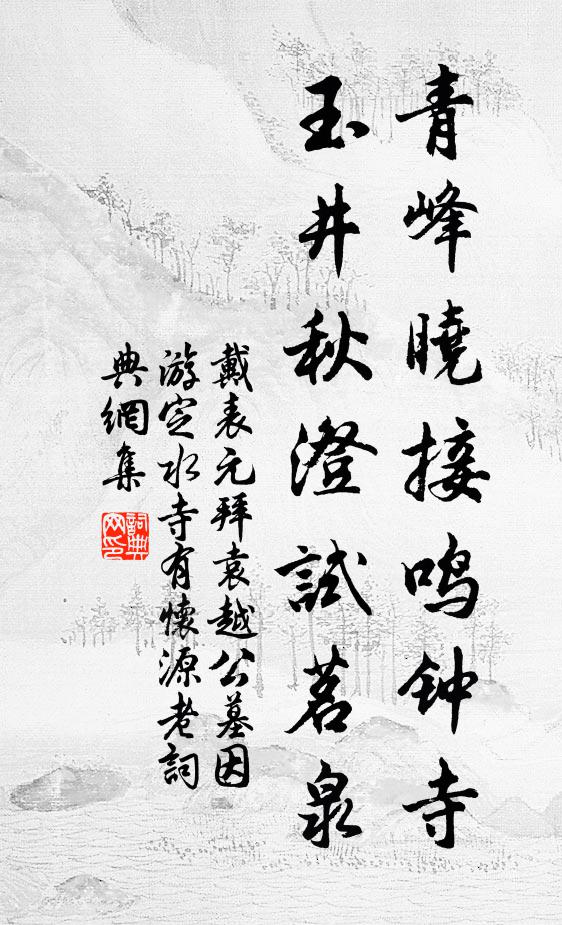 青峰曉接鸣钟寺
玉井秋澄試茗泉
戴表元拜袁越公墓因
游定水寺有懷源老詞
典網集
詞典
网印